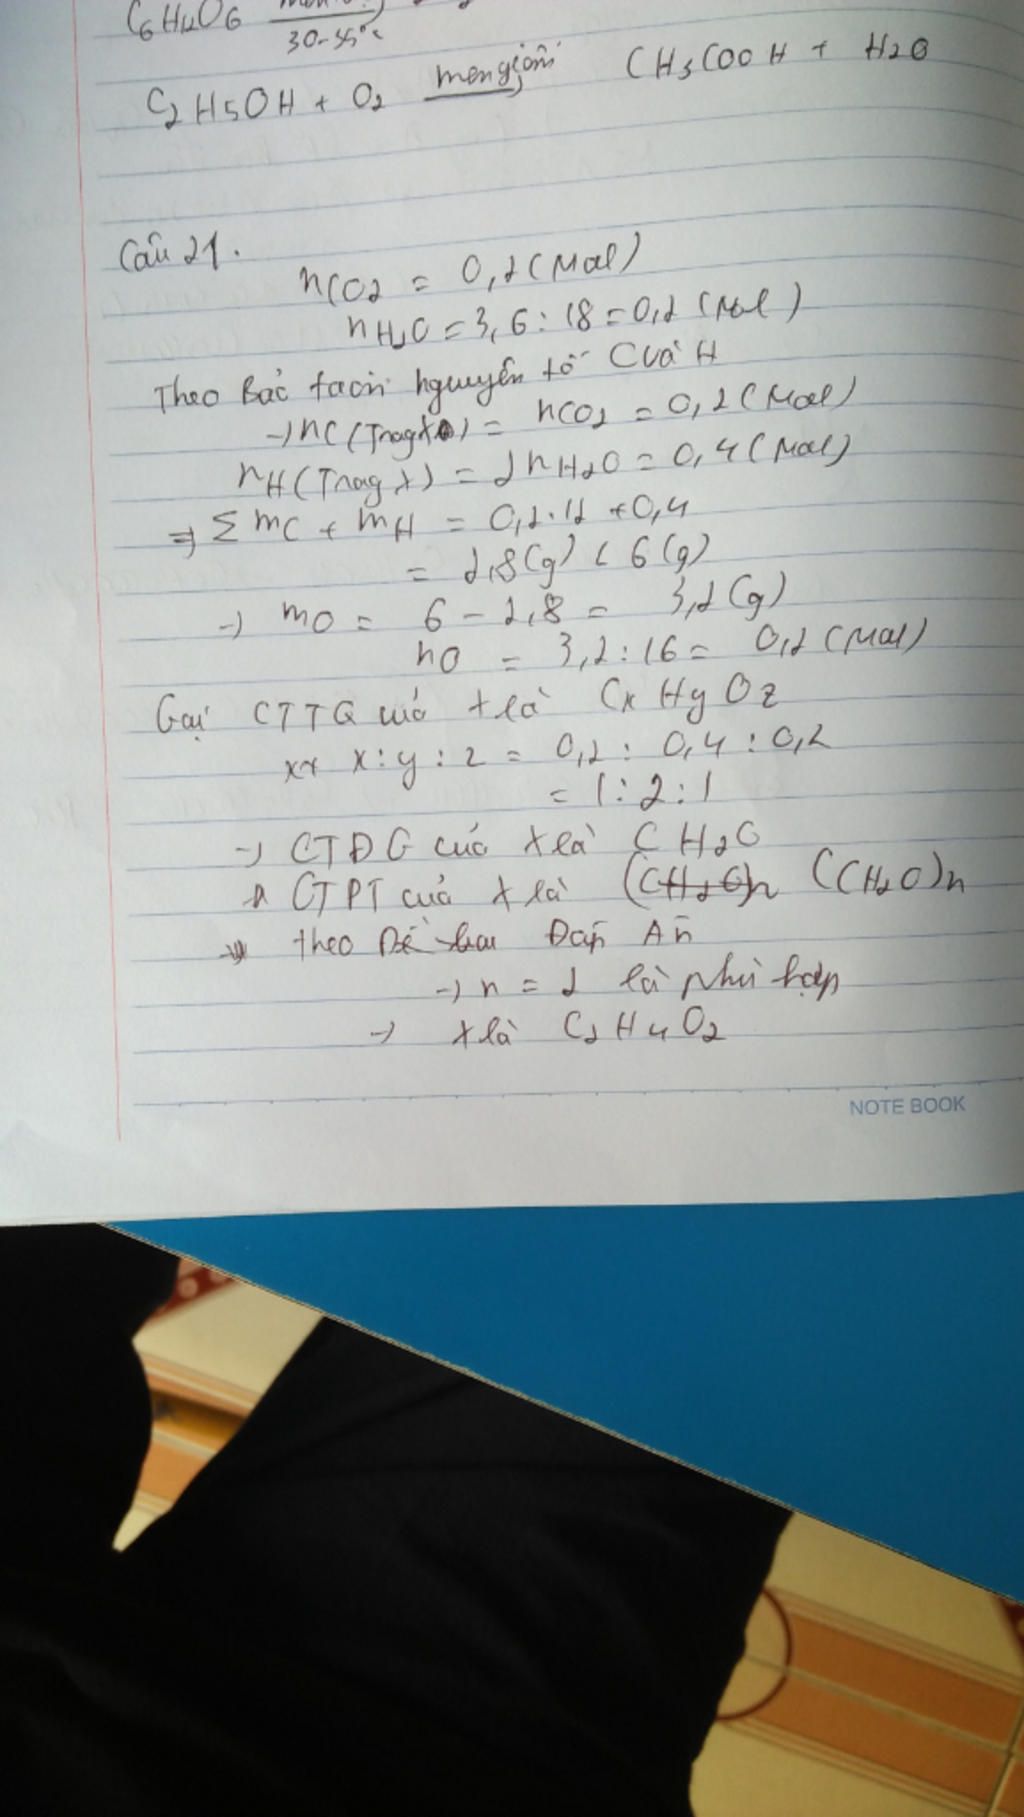 C6H12O6
30-35°c
C2H5OH + O2 men giấm CH3COOH + H2O
Câu 21.
nCO2 = 0,2 (Mol)
nH2O = 3,6 : 18 = 0,2 (Mol)
Theo Bảo toàn nguyên tố C và H
→ nC (Trog X) = nCO2 = 0,2 (Mol)
nH (Trog X) = 2nH2O = 0,4 (Mol)
⇒ Σ mC + mH = 0,2.12 + 0,4
= 2,8 (g) < 6 (g)
→ mO = 6 - 2,8 = 3,2 (g)
nO = 3,2 : 16 = 0,2 (Mol)
Gọi CTTQ của X là CxHyOz
x : y : z = 0,2 : 0,4 : 0,2
= 1 : 2 : 1
→ CTĐG của X là CH2O
CTPT của X là (CH2O)n (CH2O)n
theo Đề bài Đáp Án
→ n = 2 là phù hợp
→ X là C2H4O2
NOTE BOOK